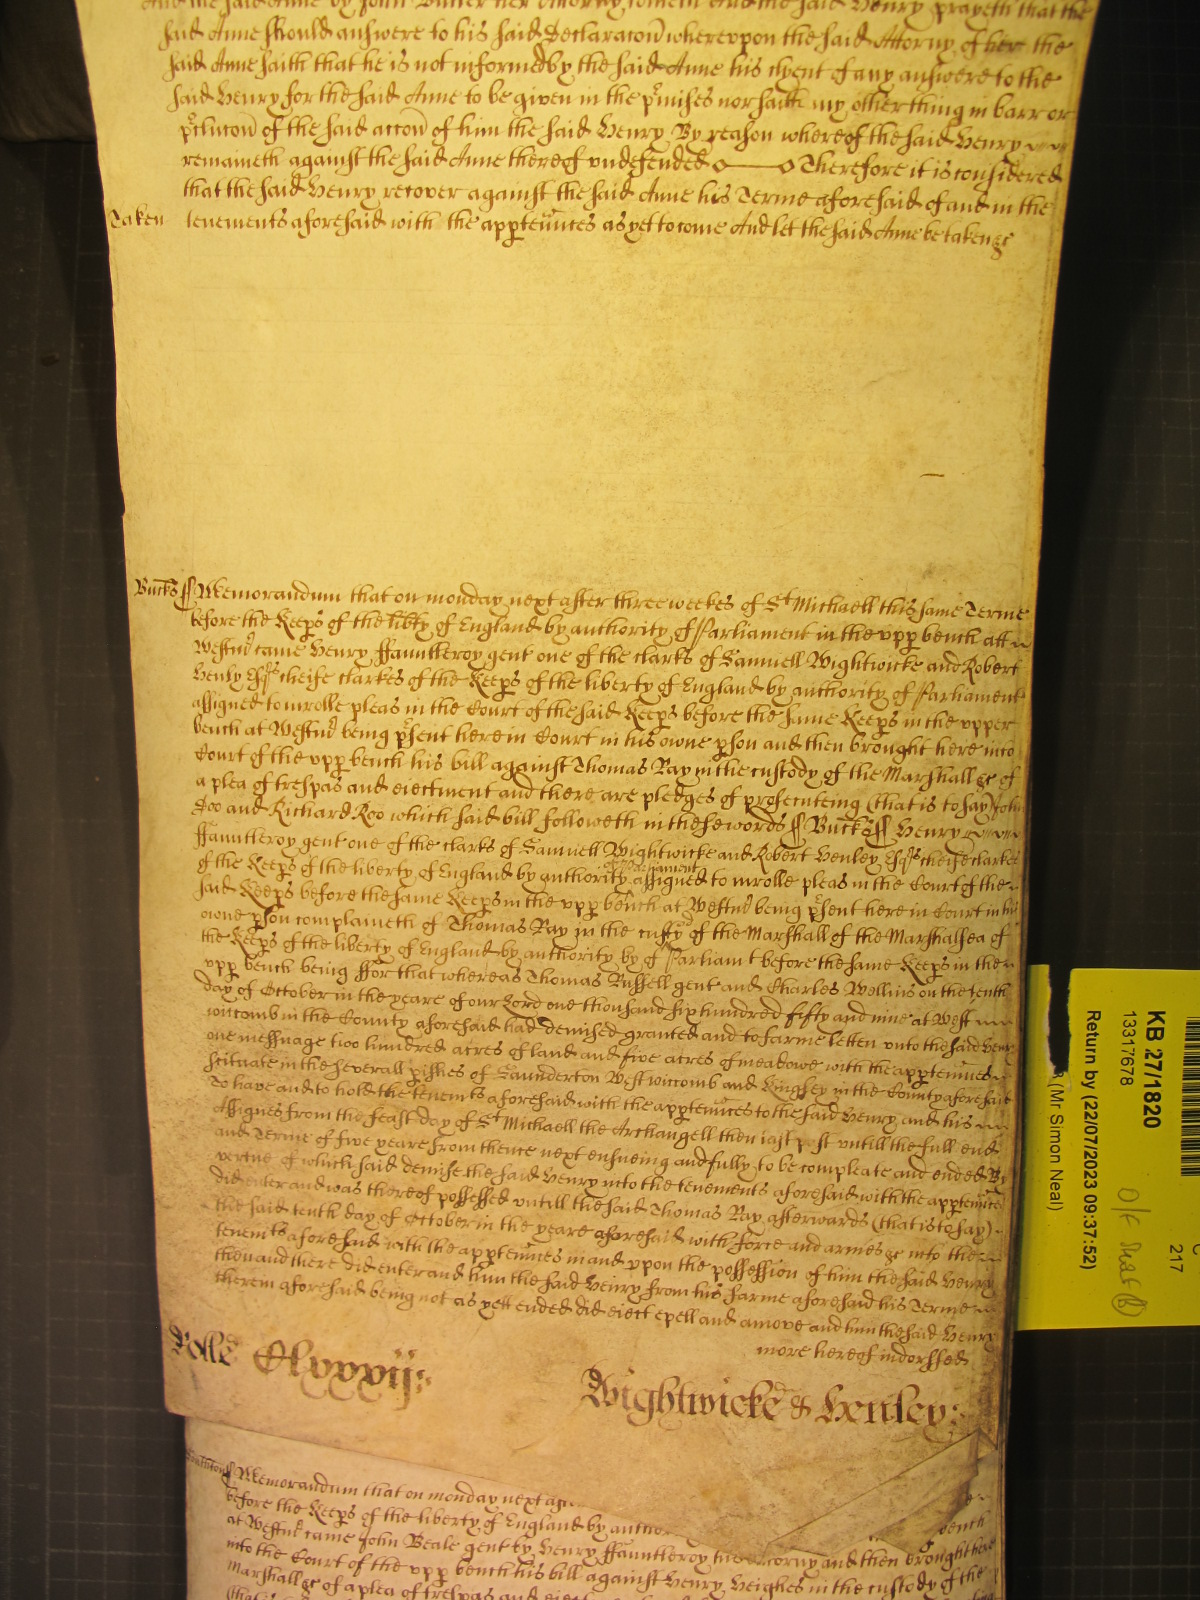 And the said Anne by John Butler her Attorny cometh And the said Henry prayeth that the
said Anne should answere to his said Declaracon whereupon the said Attorny of her the
said Anne saith that he is not informed by the said Anne his clyent of any answere to the
said Henry for the said Anne to be given in the pmises nor saith any other thing in barr or
pclucon of the said accon of him the said Henry By reason whereof the said Henry
remaineth against the said Anne thereof undefended Therefore it is considered
that the said Henry recover against the said Anne his Terme aforesaid of and in the
Taken tenements aforesaid with the apptennces as yet to come And let the said Anne be taken &c
Bucks ss Memorandum that on monday next after three weekes of St Michaell this same Terme
before the Keeps of the libty of England by authority of Parliament in the upp bench att
Westmr came Henry ffauntleroy gent one of the clarks of Samuell Wightwicke and Robert
Henly Esqrs cheife clarkes of the Keeps of the liberty of England by authority of Parliament
assigned to inrolle pleas in the Court of the said Keeps before the same Keeps in the upper
bench at Westmr being psent here in Court in his owne pson and then brought here into
Court of the upp bench his bill against Thomas Ray in the custody of the Marshall &c of
a plea of trespas and eiectment and there are pledges of prosecuteing (that is to say) John
Doo and Richard Roo which said bill followeth in these words ss Bucks ss Henry
ffauntleroy gent one of the clarks of Samuell Wightwicke and Robert Henley Esqrs cheife clarkes
of the Keeps of the liberty of England by authority of Parliament assigned to inrolle pleas in the Court of the
said Keeps before the same Keeps in the upp bench at Westmr being psent here in Court in his
owne pson complaineth of Thomas Ray in the custy of the Marshall of the Marshalsea of
the Keeps of the liberty of England by authority by of Parliamt before the same Keeps in the
upp bench being ffor that whereas Thomas Russell gent and Charles Wellins on the tenth
day of October in the yeare of our Lord one thousand six hundred fifty and nine at West
wiccomb in the County aforesaid had demised granted and to farme letten unto the said Henry
one messuage two hundred acres of land and five acres of meadowe with the apptennces
scituate in the severall pishes of Saunderton West wiccomb and Kingsey in the County aforesaid
To have and to hold the tenemts aforesaid with the apptennces to the said Henry and his
Assignes from the feast day of St Michaell the Archangell then last past untill the full end
and Terme of five yeare from thence next ensueing and fully to be compleate and ended By
vertue of which said demise the said Henry into the tenements aforesaid with the apptennces
did enter and was thereof possessed untill the said Thomas Ray afterwards (that is to say)
the said tenth day of October in the yeare aforesaid with force and armes &c into the
tenemts aforesaid with the apptennces in and upon the possession of him the said Henry
then and there did enter and him the said Henry from his farme aforesaid his Terme
therein aforesaid being not as yett ended did eiect expell and amove and him the said Henry
more hereof indorssed
Rolle Clxxxij:
Wightwicke & Henley:
Memorandum that on monday next
before the Keeps of the liberty of England by
bench
at Westmr came John Beale gent by Henry ffauntleroy his Attorny and then brought here
into the Court of the upp bench his bill against Henry Heighes in the custody of the
Marshall &c of a plea of trespas and
KB 271820
13317678
Return by (22/07/2023 09:37:52)
(Mr Simon Neal)
217